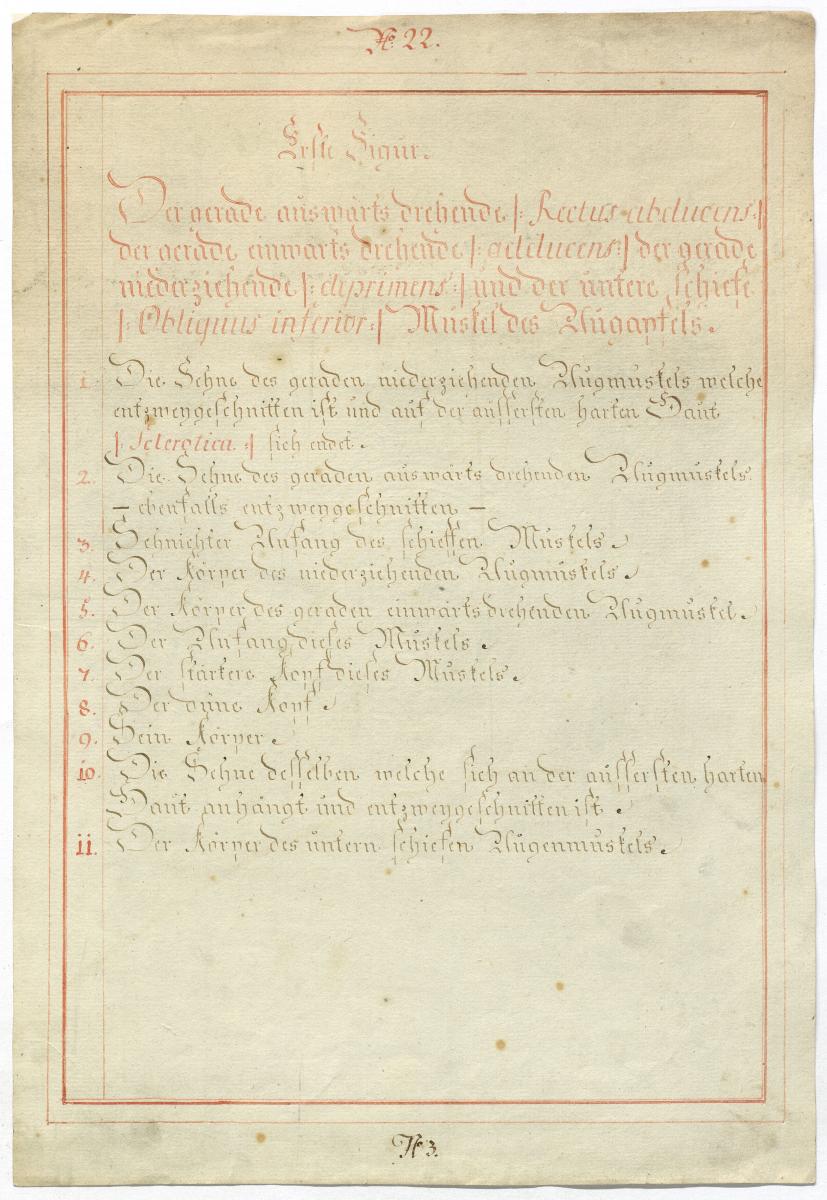 No. 22.
Erste Figur.
Der gerade auswärts drehende |: Rectus abducens :|
der gerade einwärts drehende |: adducens :| der gerade
niederziehende |: deprimens :| und der untere schiefe
|: Obliquus inferior :| Muskel des Augapfels.
1. Die Sehne des geraden niederziehenden Augmuskels welche
entzweygeschnitten ist und auf der äussersten harten Haut
|: Sclerotica :| sich endet.
2. Die Sehne des geraden auswärts drehenden Augmuskels
— ebenfalls entzweygeschnitten —
3. Sehnichter Anfang des schieffen Muskels.
4. Der Körper des niederziehenden Augmuskels.
5. Der Körper des geraden einwärts drehenden Augmuskel.
6. Der Anfang dieses Muskels.
7. Der stärkere Kopf dieses Muskels.
8. Der düne Kopf.
9. Sein Körper.
10. Die Sehne desselben welche sich an der äussersten harten
Haut anhängt und entzweygeschnitten ist.
11. Der Körper des untern schiefen Augenmuskels.
No 3.